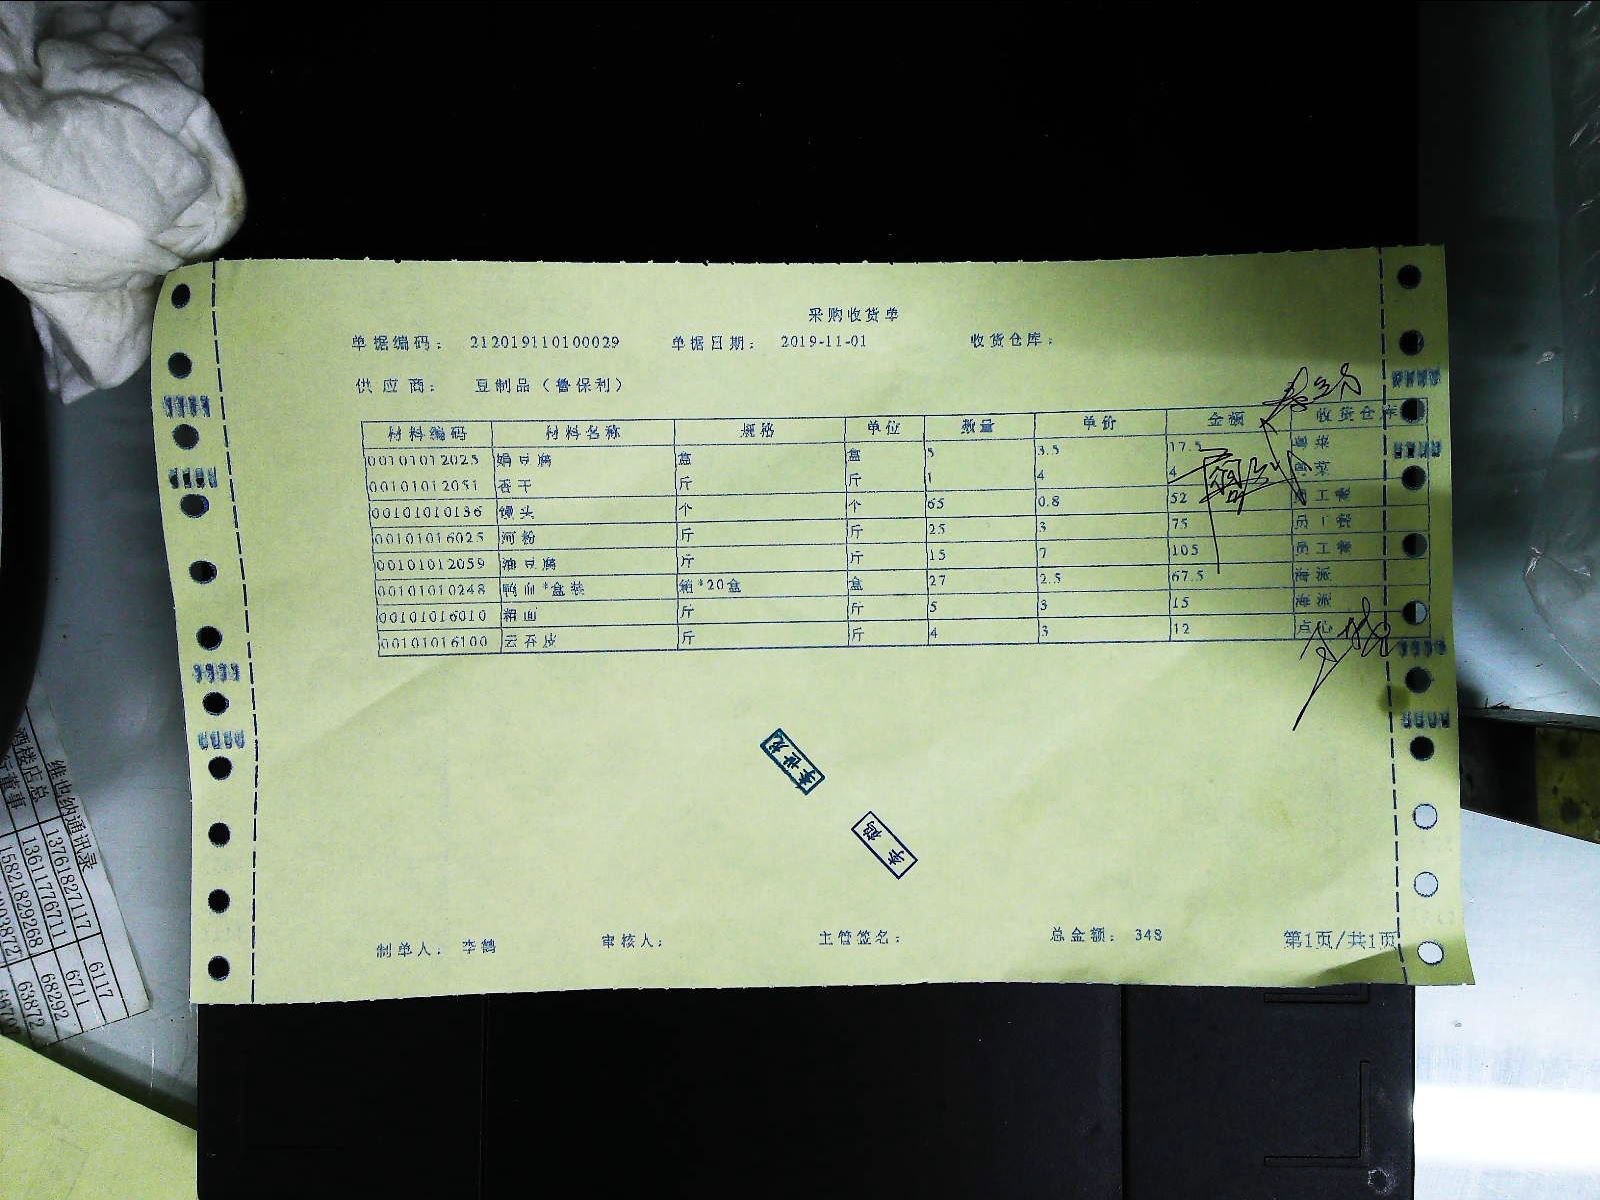 采购收货单
单据编码： 212019110100029 单据日期： 2019-11-01 收货仓库：
供应商： 豆制品（鲁保利）
材料编码 材料名称 规格 单位 数量 单价 金额 收货仓库
00101012025 绢豆腐 盒 盒 5 3.5 17.5 粤菜
00101012051 香干 斤 斤 1 4 4 粤菜
00101010136 馒头 个 个 65 0.8 52 员工餐
00101016025 河粉 斤 斤 25 3 75 员工餐
00101012059 油豆腐 斤 斤 15 7 105 员工餐
00101010248 鸭血*盒装 箱*20盒 盒 27 2.5 67.5 海派
00101016010 粗面 斤 斤 5 3 15 海派
00101016100 云吞皮 斤 斤 4 3 12 点心
李世龙
李鹤
制单人： 李鹤 审核人： 主管签名： 总金额： 348 第1页/共1页
维也纳通讯录
酒楼店总 13761827117 6117
行董事 13611776711 6711
15821829268 68292
63872